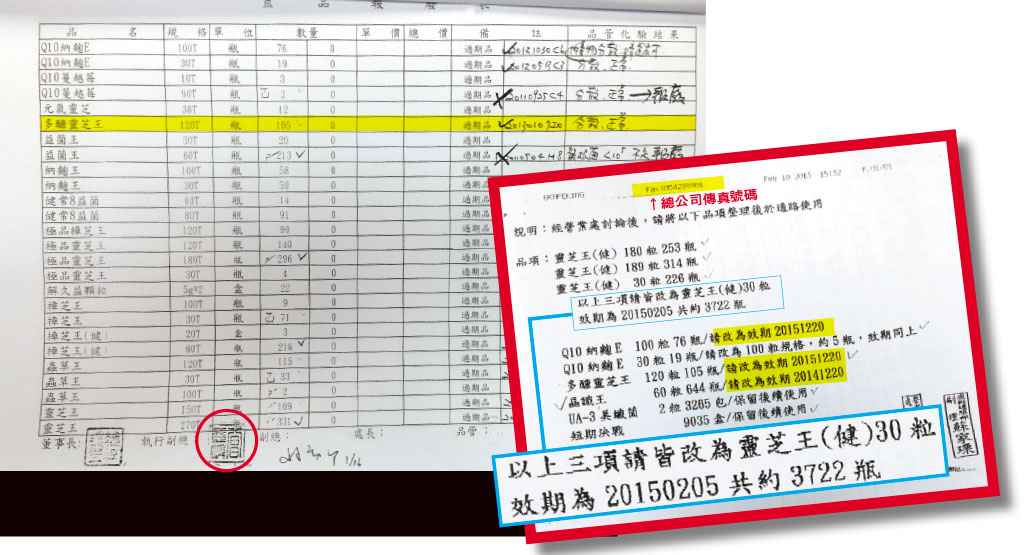 品 名 規 格 單 位 數 量 單 價 總 價 備 註 品 管 化 驗 結 果
Q10納麴E 100T 瓶 76 0 過期品
Q10納麴E 30T 瓶 19 0 過期品 分裝.正常
Q10蔓越莓 10T 瓶 3 0 過期品
Q10蔓越莓 90T 瓶 3 0 過期品 分裝.正常→報廢
元氣靈芝 30T 瓶 12 0 過期品
多醣靈芝王 120T 瓶 105 0 過期品 分裝.正常
益菌王 30T 瓶 20 0 過期品
益菌王 60T 瓶 213 0 過期品
納麴王 100T 瓶 58 0 過期品
納麴王 30T 瓶 50 0 過期品
健常8益菌 60T 瓶 14 0 過期品
健常8益菌 80T 瓶 91 0 過期品
極品樟芝王 120T 瓶 99 0 過期品
極品靈芝王 120T 瓶 140 0 過期品
極品靈芝王 180T 瓶 296 0 過期品
極品靈芝王 30T 瓶 4 0 過期品
解久益顆粒 5g*2 盒 22 0 過期品
樟芝王 100T 瓶 9 0 過期品
樟芝王 30T 瓶 71 0 過期品
樟芝王(健) 20T 盒 3 0 過期品
樟芝王(健) 60T 瓶 216 0 過期品
蟲草王 120T 瓶 115 0 過期品
蟲草王 30T 瓶 33 0 過期品
蟲草王 100T 瓶 2 0 過期品
靈芝王 150T 瓶 169 0 過期品
靈芝王 270T 瓶 331 0 過期品
董事長: 執行副總: 副總: 處長: 品管:
1/16
Feb 19 2013 15:32 P.01/01
↑總公司傳真號碼
說明：經營業處討論後，請將以下品項整理後於通路使用
品項：靈芝王(健) 180 粒 253 瓶
靈芝王(健) 189 粒 314 瓶
靈芝王(健) 30 粒 226 瓶
以上三項請皆改為靈芝王(健)30 粒
效期為 20150205 共約 3722 瓶
Q10 納麴 E 100 粒 76 瓶/請改為效期 20151220
Q10 納麴 E 30 粒 19 瓶/請改為 100 粒規格，約 5 瓶，效期同上
多醣靈芝王 120 粒 105 瓶/請改為效期 20151220
晶識王 60 粒 644 瓶/請改為效期 20141220
UA-3 吳纖茵 2 粒 3265 包/保留後續使用
短期決戰 9035 盒/保留後續使用
以上三項請皆改為靈芝王(健)30 粒
效期為 20150205 共約 3722 瓶